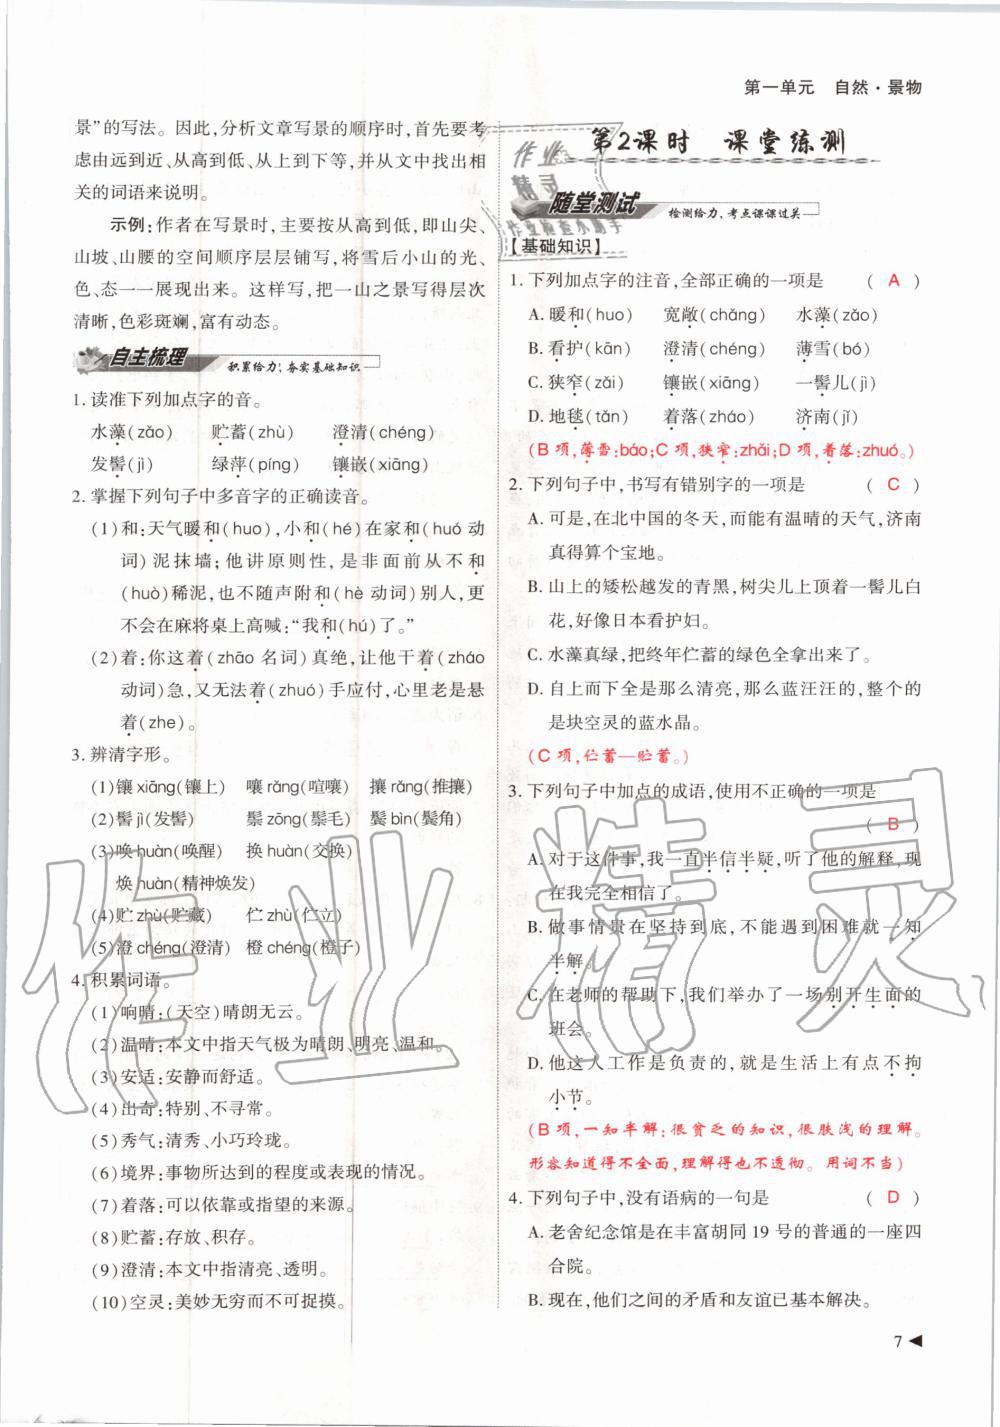 第一单元 自然·景物
景”的写法。因此,分析文章写景的顺序时,首先要考
虑由远到近、从高到低、从上到下等,并从文中找出相
关的词语来说明。
示例:作者在写景时,主要按从高到低,即山尖、
山坡、山腰的空间顺序层层铺写,将雪后小山的光、
色、态一一展现出来。这样写,把一山之景写得层次
清晰,色彩斑斓,富有动态。
自主梳理 积累给力,夯实基础知识
1. 读准下列加点字的音。
水藻(zǎo) 贮蓄(zhù) 澄清(chéng)
发髻(jì) 绿萍(píng) 镶嵌(xiāng)
2. 掌握下列句子中多音字的正确读音。
(1)和:天气暖和(huo),小和(hé)在家和(huó 动
词)泥抹墙;他讲原则性,是非面前从不和
(huò)稀泥,也不随声附和(hè 动词)别人,更
不会在麻将桌上高喊:“我和(hú)了。”
(2)着:你这着(zhāo 名词)真绝,让他干着(zháo
动词)急,又无法着(zhuó)手应付,心里老是悬
着(zhe)。
3. 辨清字形。
(1)镶 xiāng(镶上) 嚷 rǎng(喧嚷) 攘 rǎng(推攘)
(2)髻 jì(发髻) 鬃 zōng(鬃毛) 鬓 bìn(鬓角)
(3)唤 huàn(唤醒) 换 huàn(交换)
焕 huàn(精神焕发)
(4)贮 zhù(贮藏) 伫 zhù(伫立)
(5)澄 chéng(澄清) 橙 chéng(橙子)
4. 积累词语。
(1)响晴:(天空)晴朗无云。
(2)温晴:本文中指天气极为晴朗、明亮、温和。
(3)安适:安静而舒适。
(4)出奇:特别、不寻常。
(5)秀气:清秀、小巧玲珑。
(6)境界:事物所达到的程度或表现的情况。
(7)着落:可以依靠或指望的来源。
(8)贮蓄:存放、积存。
(9)澄清:本文中指清亮、透明。
(10)空灵:美妙无穷而不可捉摸。
第2课时 课堂练测
随堂测试 检测给力,考点课课过关
【基础知识】
1. 下列加点字的注音,全部正确的一项是 ( A )
A. 暖和(huo) 宽敞(chǎng) 水藻(zǎo)
B. 看护(kān) 澄清(chéng) 薄雪(bó)
C. 狭窄(zǎi) 镶嵌(xiāng) 一髻儿(jì)
D. 地毯(tǎn) 着落(zháo) 济南(jǐ)
(B 项,薄雪:báo;C 项,狭窄:zhǎi;D 项,着落:zhuó。)
2. 下列句子中,书写有错别字的一项是 ( C )
A. 可是,在北中国的冬天,而能有温晴的天气,济南
真得算个宝地。
B. 山上的矮松越发的青黑,树尖儿上顶着一髻儿白
花,好像日本看护妇。
C. 水藻真绿,把终年伫蓄的绿色全拿出来了。
D. 自上而下全是那么清亮,那么蓝汪汪的,整个的
是块空灵的蓝水晶。
(C 项,伫蓄—贮蓄。)
3. 下列句子中加点的成语,使用不正确的一项是
( B )
A. 对于这件事,我一直半信半疑,听了他的解释,现
在我完全相信了。
B. 做事情贵在坚持到底,不能遇到困难就一知
半解。
C. 在老师的帮助下,我们举办了一场别开生面的
班会。
D. 他这人工作是负责的,就是生活上有点不拘
小节。
(B 项,一知半解:很贫乏的知识,很肤浅的理解。
形容知道得不全面,理解得也不透彻。用词不当)
4. 下列句子中,没有语病的一句是 ( D )
A. 老舍纪念馆是在丰富胡同 19 号的普通的一座四
合院。
B. 现在,他们之间的矛盾和友谊已基本解决。
7
作业精灵
作业精灵
作业检查小助手